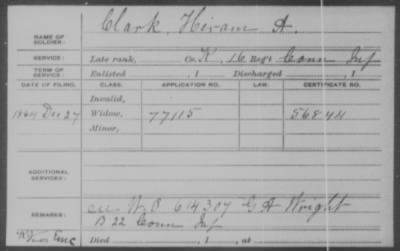 NAME OF SOLDIER: Clark, Hiram A.
SERVICE: Late rank, Co. K, 16 Regt Conn Inf
TERM OF SERVICE: Enlisted , 1 Discharged , 1
DATE OF FILING. CLASS. APPLICATION NO. LAW. CERTIFICATE NO.
Invalid,
1864 Dec 27 Widow, 77115 56844
Minor,
ADDITIONAL SERVICES:
REMARKS: W O 614307 G A Wright
B 22 Conn Inf
Died , 1 , at